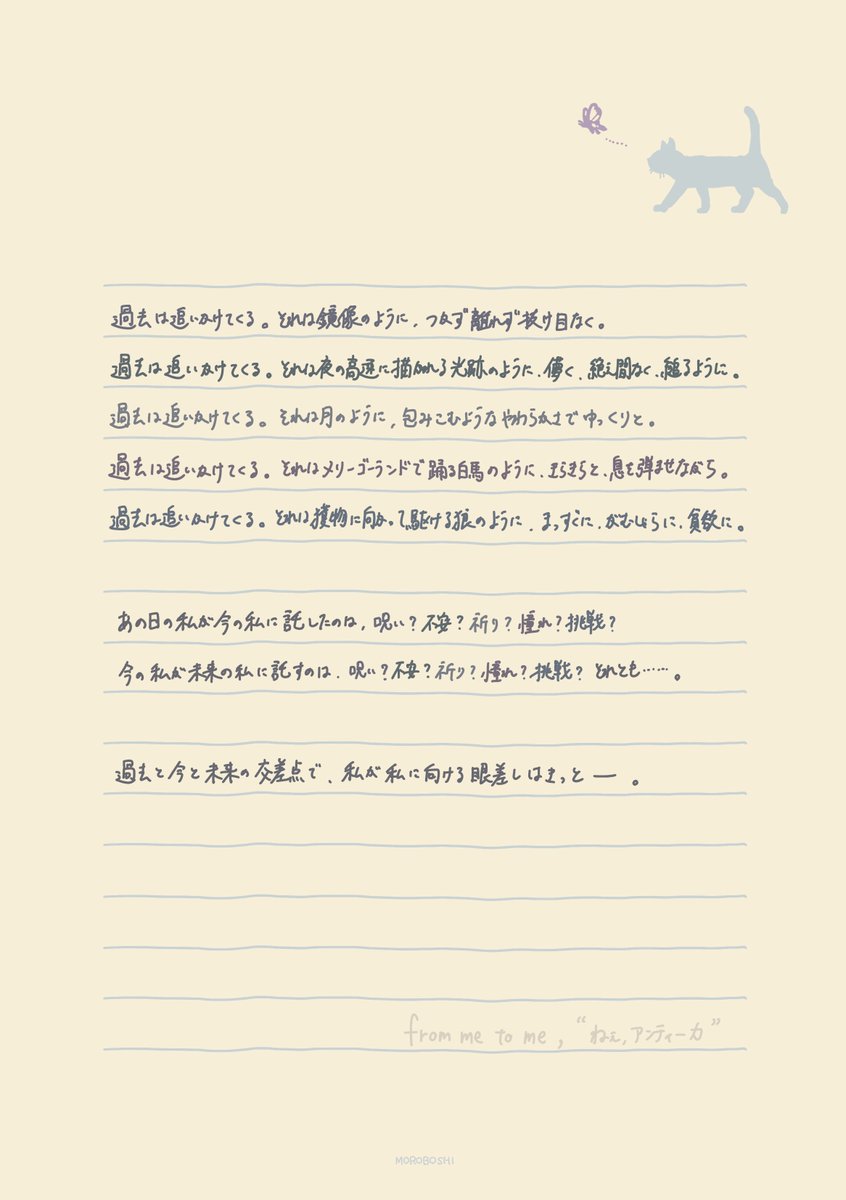 過去は追いかけてくる。それは鏡像のように、つかず離れず抜け目なく。
過去は追いかけてくる。それは夜の高速に描かれる光跡のように、儚く、絶え間なく、縋るように。
過去は追いかけてくる。それは月のように、包みこむようなやわらかさでゆっくりと。
過去は追いかけてくる。それはメリーゴーランドで踊る白馬のように、きらきらと、息を弾ませながら。
過去は追いかけてくる。それは獲物に向かって駆ける狼のように、まっすぐに、がむしゃらに、貪欲に。
あの日の私が今の私に託したのは、呪い？不安？祈り？憧れ？挑戦？
今の私が未来の私に託すのは、呪い？不安？祈り？憧れ？挑戦？それとも……。
過去と今と未来の交差点で、私が私に向ける眼差しはきっと ― 。
from me to me , “ねぇ,アンティーカ”
MOROBOSHI